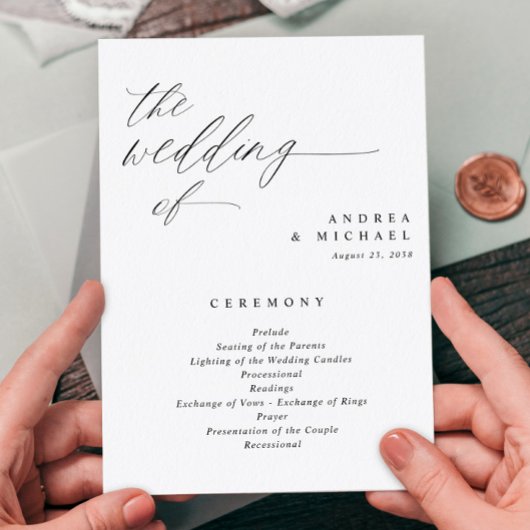 the
wedding
of
ANDREA
& MICHAEL
August 23, 2038
CEREMONY
Prelude
Seating of the Parents
Lighting of the Wedding Candles
Processional
Readings
Exchange of Vows - Exchange of Rings
Prayer
Presentation of the Couple
Recessional